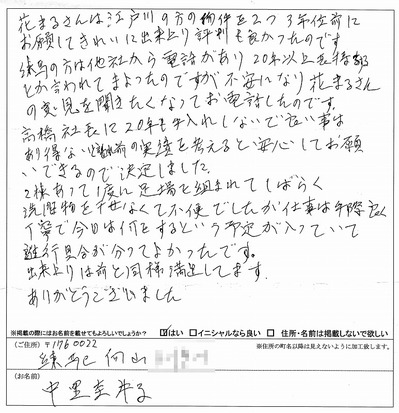 花まるさんは江戸川の方の物件を2つ3年位前に
お願してきれいに出来上り評判も良かったのです
練馬の方は他社から電話があり20年以上も持つ
とか言われてまよったのですが不安になり花まるさん
の意見を聞きたくなってお電話したのです。
高橋社長に20年も手入れしないで良い事は
あり得ない 前の実績を考えると安心してお願
いできるので決定しました。
2棟あって1度に足場を組まれてしばらく
洗濯物を干せなくて不便でしたが仕事は手際良く
丁寧で今日は何をするという予定が入っていて
進行具合が分ってよかったです。
出来上りは前と同様満足してます。
ありがとうございました
※掲載の際にはお名前を載せてもよろしいでしょうか? ☑はい □イニシャルなら良い □ 住所・名前は掲載しないで欲しい
(ご住所) 〒1760022 ※住所の町名以降は見えないように加工致します。
練馬区向山
(お名前)
中里